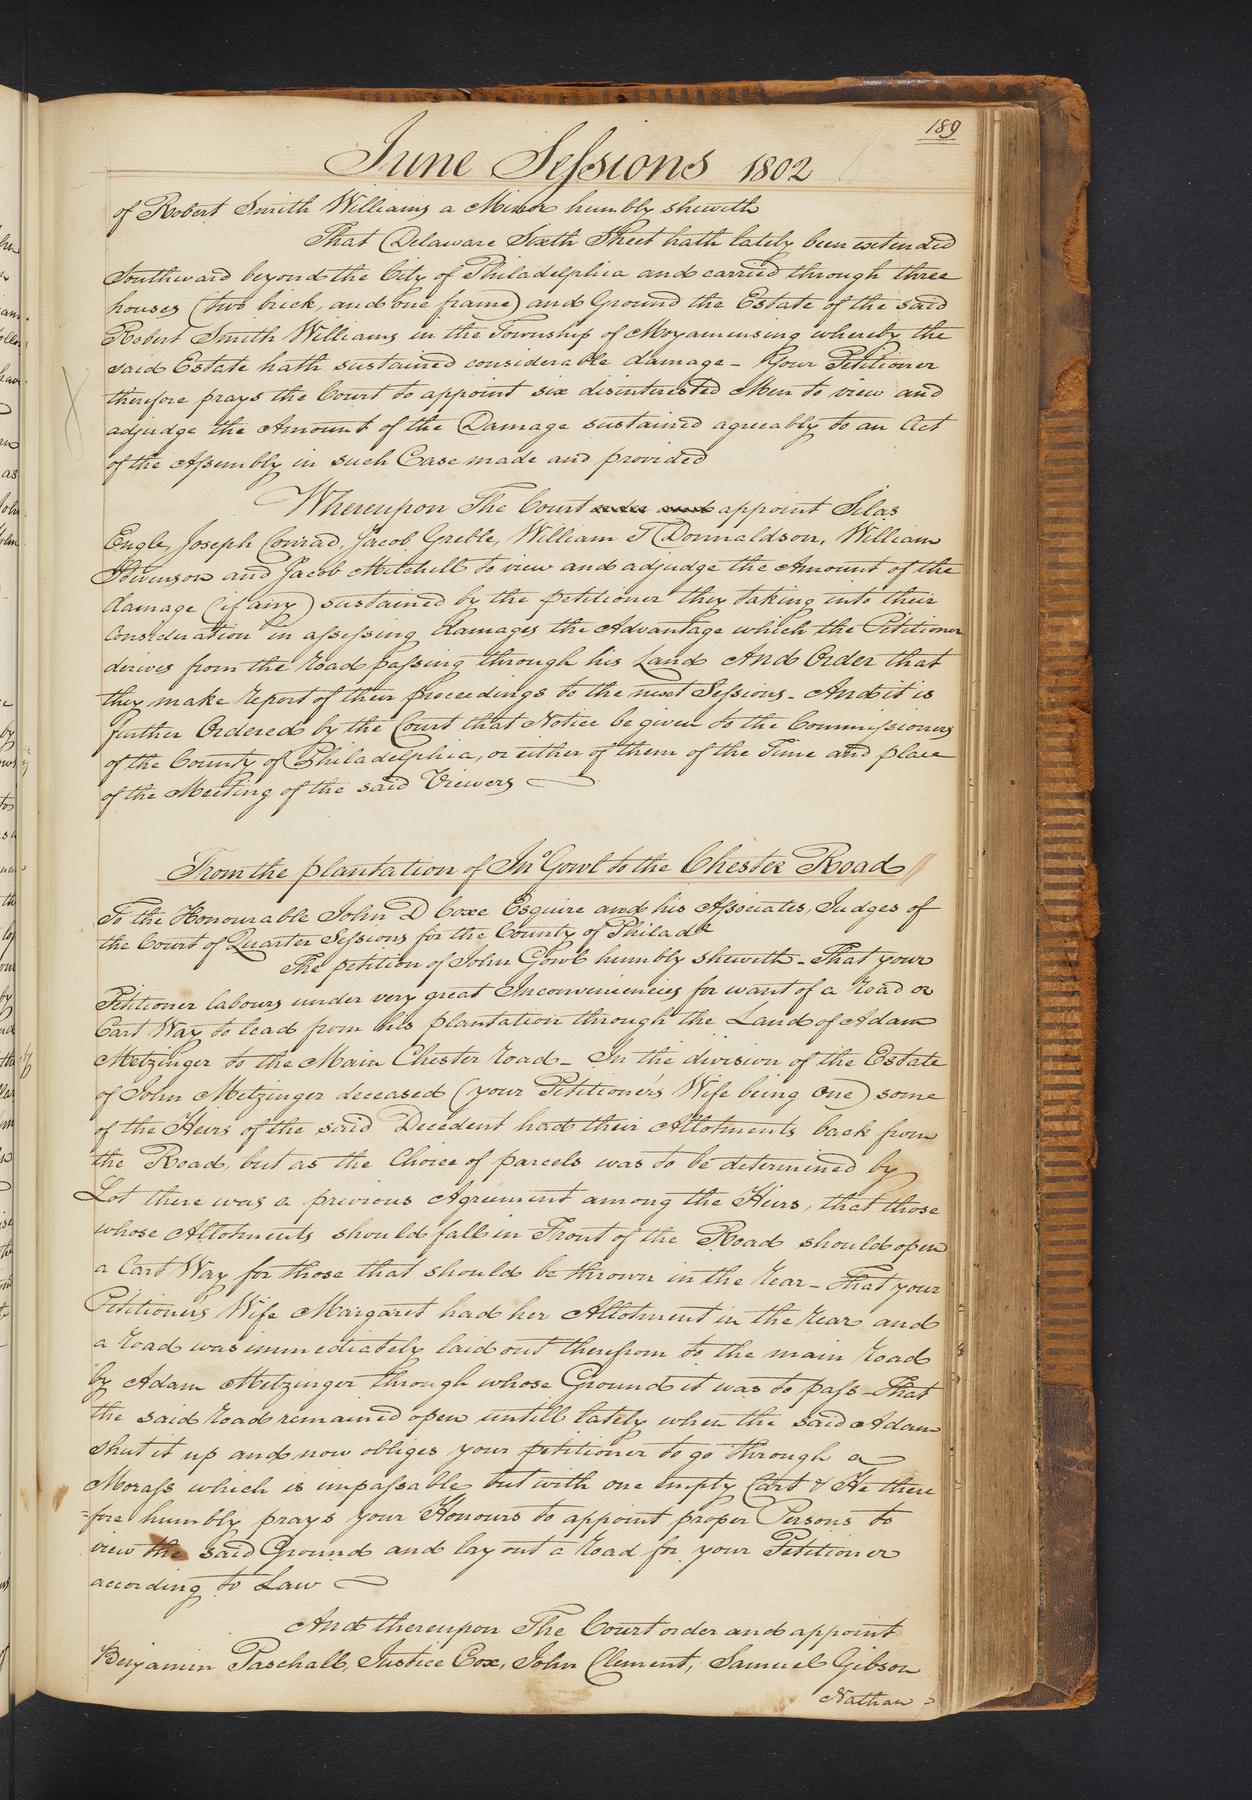 189
June Sessions 1802
of Robert Smith Williams a Minor humbly sheweth
That Delaware Sixth Street hath lately been extended
Southward beyond the City of Philadelphia and carried through three
houses (two brick, and one frame) and Ground the Estate of the said
Robert Smith Williams in the Township of Moyamensing whereby the
said Estate hath sustained considerable damage - Your Petitioner
therefore prays the Court to appoint six disinterested Men to view and
adjudge the Amount of the Damage sustained agreeably to an Act
of the Assembly in such Case made and provided
Whereupon The Court order and appoint Silas
Engle, Joseph Conrad, Jacob Greble, William T Donnaldson, William
Stevenson and Jacob Mitchell to view and adjudge the Amount of the
damage (if any) sustained by the petitioner they taking into their
Consideration in assessing damages the Advantage which the Petitioner
derives from the road passing through his Land And Order that
they make report of their proceedings to the next Sessions - And it is
further Ordered by the Court that Notice be given to the Commissioners
of the County of Philadelphia, or either of them of the Time and place
of the Meeting of the said Viewers
From the plantation of Jno Gowl to the Chester Road
To the Honourable John D Coxe Esquire and his Associates, Judges of
the Court of Quarter Sessions for the County of Philada
The petition of John Gowl humbly sheweth - That your
Petitioner labours under very great Inconveniencies for want of a road or
Cart Way to lead from his plantation through the Land of Adam
Metzinger to the Main Chester road - In the division of the Estate
of John Metzinger deceased (your Petitioners Wife being one) some
of the Heirs of the said Decedent had their Allotments back from
the Road, but as the Choice of parcels was to be determined by
Lot there was a previous Agreement among the Heirs, that those
whose Allotments should fall in Front of the Road should open
a Cart Way for those that should be thrown in the rear - That your
Petitioners Wife Margaret had her Allotment in the rear and
a road was immediately laid out therefrom to the main road
by Adam Metzinger through whose Ground it was to pass - That
the said road remained open untill lately when the said Adam
shut it up and now obliges your petitioner to go through a
Morass which is impassable but with one empty Cart & He there
=fore humbly prays your Honours to appoint proper Persons to
view the said Ground and lay out a road for your Petitioner
according to Law
And thereupon The Court order and appoint
Benjamin Paschall, Justice Cox, John Clement, Samuel Gibson
Nathan